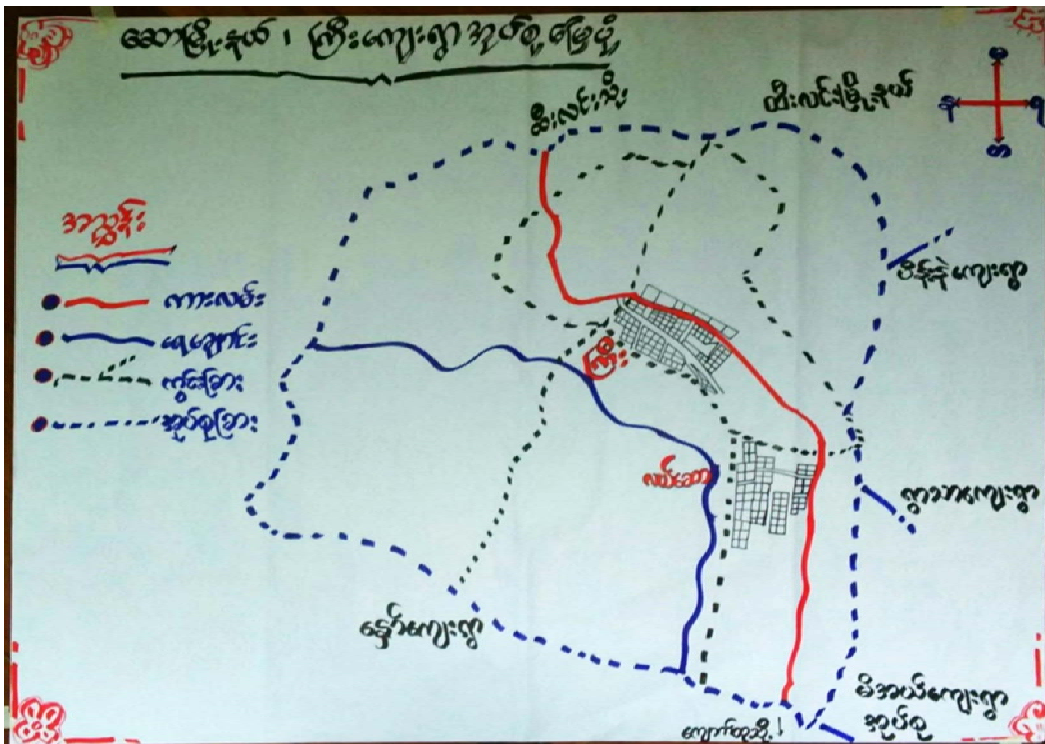 ဆောမြို့နယ်၊ ကြီးကျေးရွာအုပ်စု မြေပုံ
ထီးလင်းသို့
ထီးလင်းမြို့နယ်
န
တ
အညွှန်း
ကားလမ်း
ရေချောင်း
ကွင်းခြား
အုပ်စုခြား
ကြီး
ကျေးရွာ
ကျေးရွာ
ကျေးရွာ
မိအယ်ကျေးရွာ
အုပ်စု
ကျောက်ထုသို့